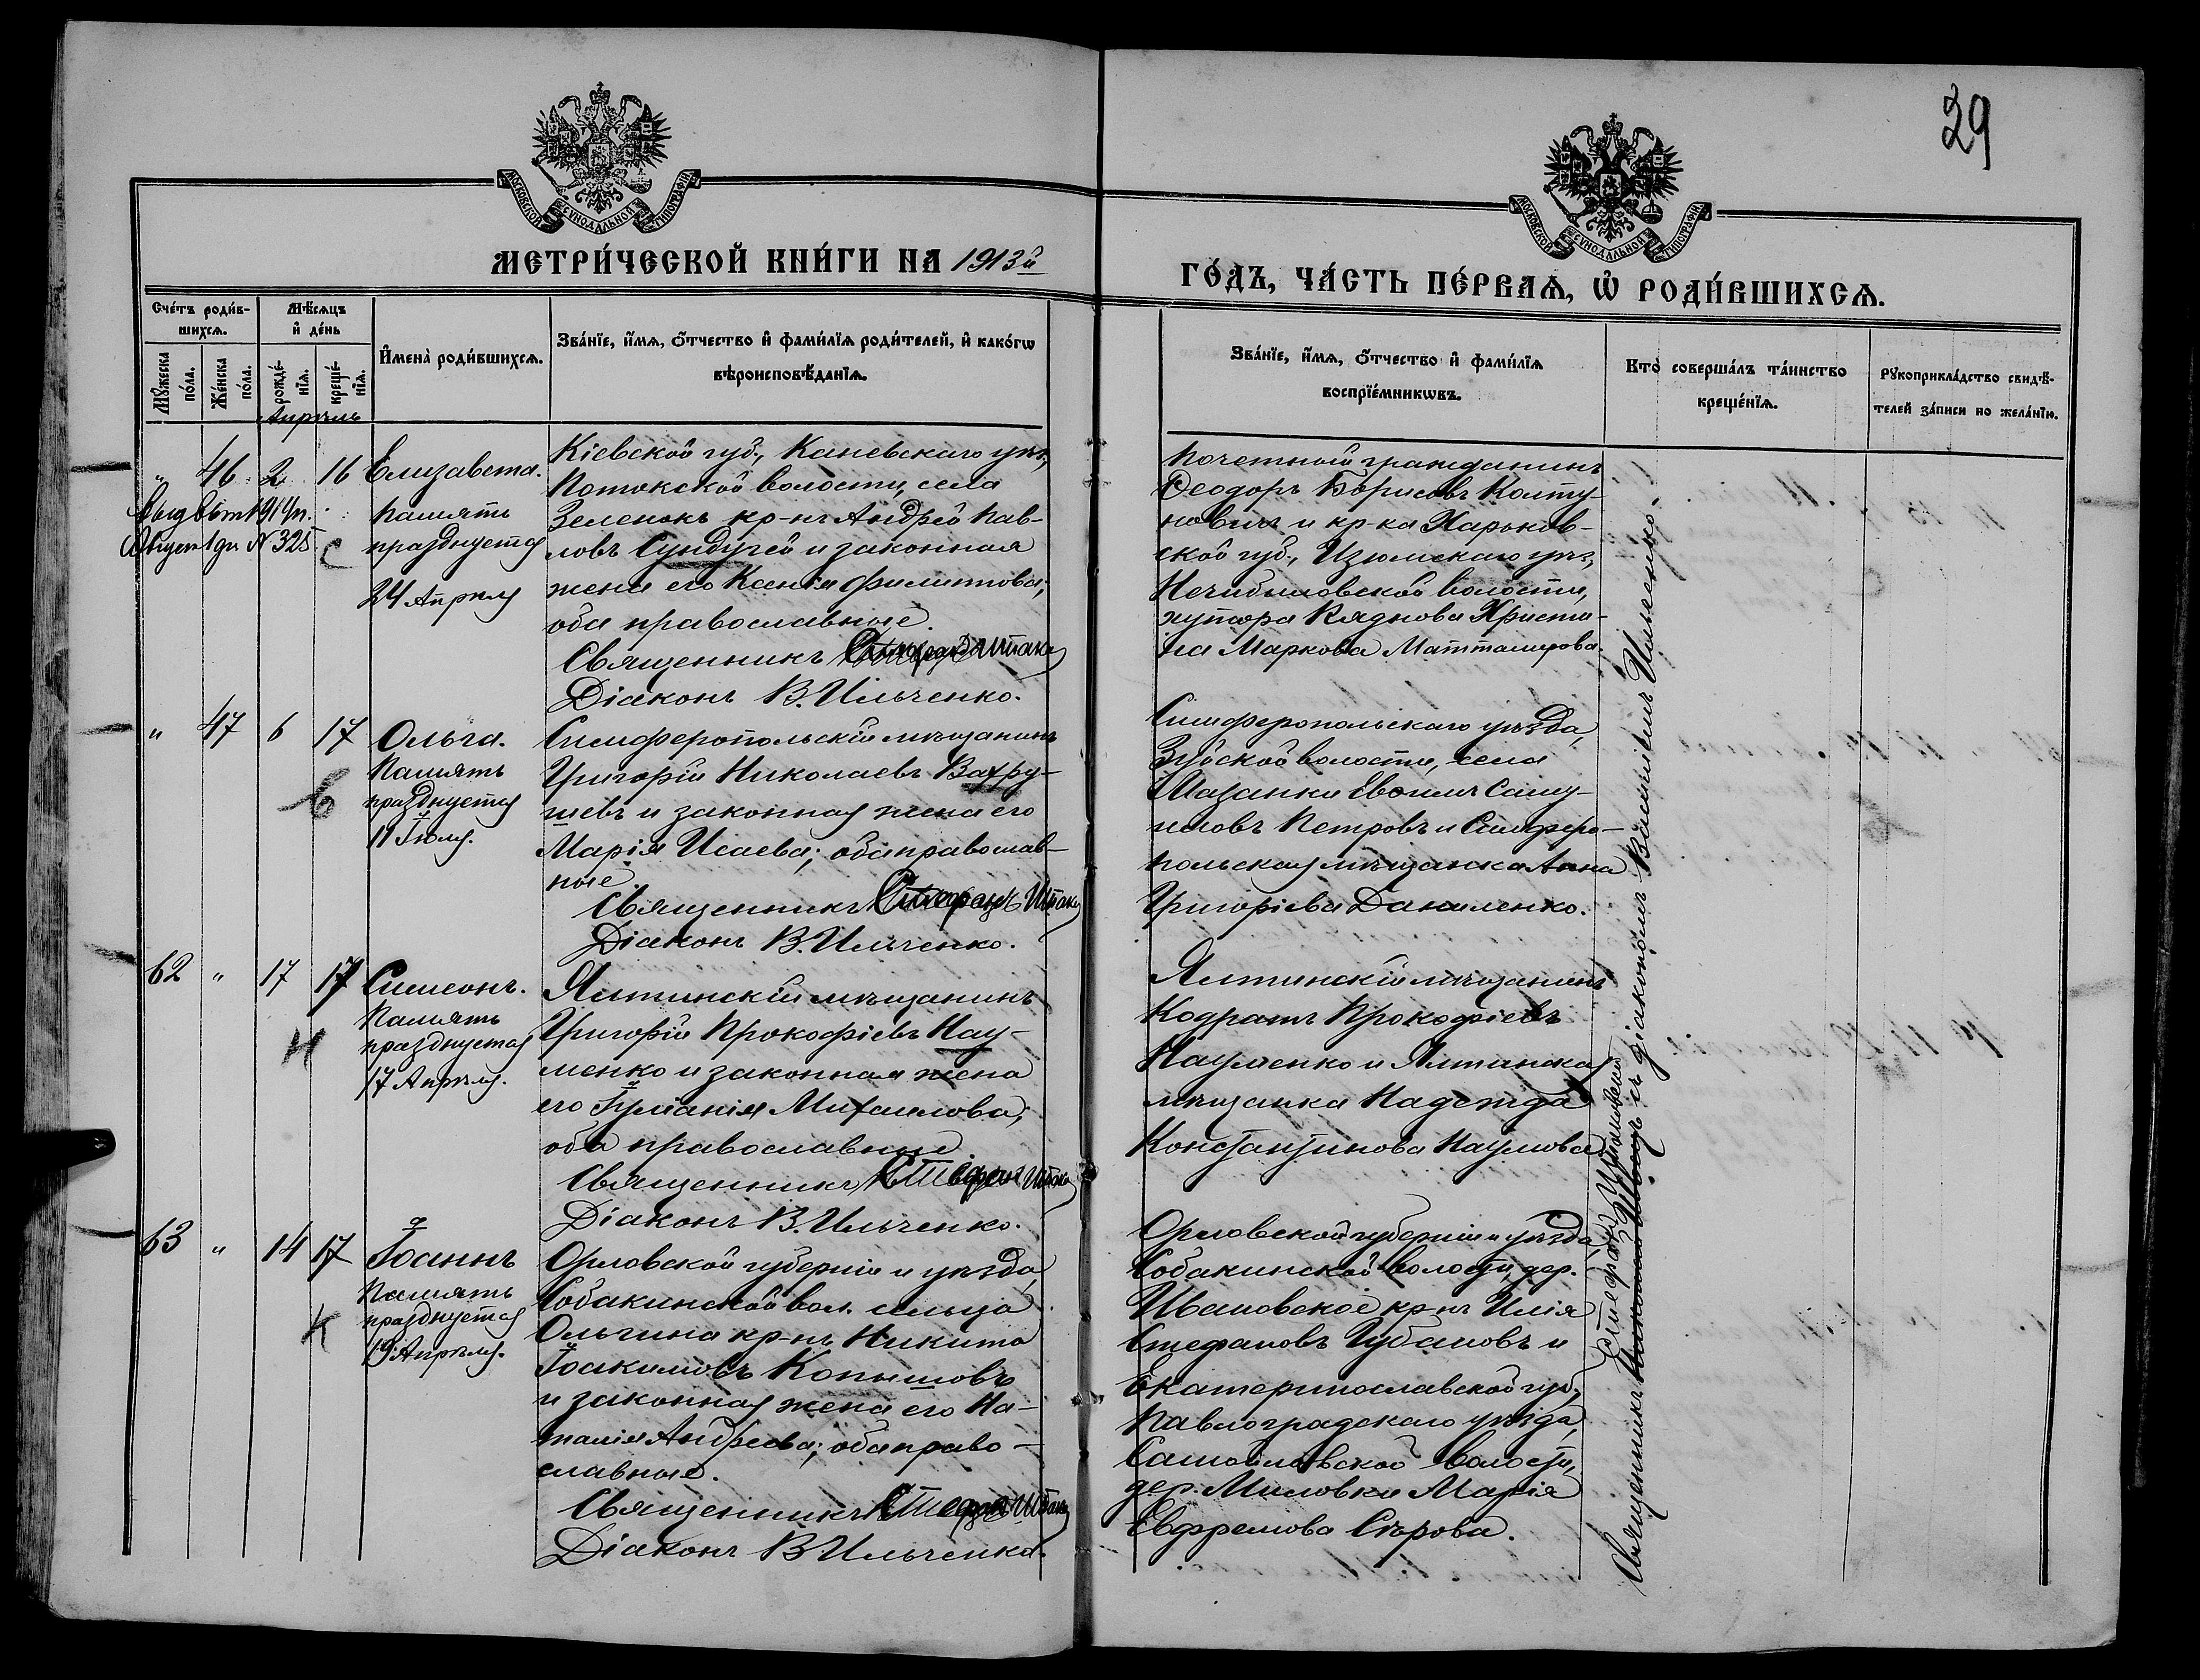 29
МОСКОВСКОЙ СѴНОДАЛЬНОЙ ТИПОГРАФІИ
МОСКОВСКОЙ СѴНОДАЛЬНОЙ ТИПОГРАФІИ
МЕТРИ́ЧЕСКОЙ КНИ́ГИ НА 1913й
ГО́ДЪ, ЧА́СТЬ ПЕ́РВАѦ, Ѡ҆ РОДИ́ВШИХСѦ.
Сче́тъ роди́в-
шихсѧ.
Мꙋ́жеска по́ла.
Же́нска по́ла.
Мѣ́сѧцъ
и҆ де́нь
рожде́-
нїѧ.
креще́-
нїѧ.
Апрѣль
И҆мена̀ роди́вшихсѧ.
Зва́нїе, и҆́мѧ, ѻ҆́тчество и҆ фами́лїѧ роди́телей, и҆ како́гѡ
вѣроисповѣ́данїѧ.
Зва́нїе, и҆́мѧ, ѻ҆́тчество и҆ фами́лїѧ
воспрїе́мникѡвъ.
Кто̀ соверша́лъ та́инство
креще́нїѧ.
Рꙋкоприкла́дство свидѣ́-
телей за́писи по жела́нїю.
" 46 2 16 Елизавета.
Память
празднуется
24 Апрѣля
С
Выд. 191
Август № 325
Кіевской губ., Каневскаго уѣз.,
Потокской волости, села
Зеленокъ кр-нъ Андрей Пав-
ловъ Сундугей и законная
жена его Ксенія Филиппова;
оба православные.
Священникъ Стефанъ
Діаконъ В. Ильченко.
Почетный гражданинъ
Ѳеодоръ Борисовъ Колту-
новичъ и кр-ка Харьков-
ской губ., Изюмскаго уѣз.,
волости,
хутора Христи-
на Маркова
" 47 6 17 Ольга.
Память
празднуется
11 Іюля.
В
Симферопольскій мѣщанинъ
Григорій Николаевъ Вахру-
шевъ и законная жена его
Марія Исаева; оба православ-
ные
Священникъ Стефанъ
Діаконъ В. Ильченко.
Симферопольскаго уѣзда,
Зуйской волости, села
Мазанки Самy-
иловъ Петровъ и Симферо-
польская мѣщанка Анна
Григорьева Даниленко.
62 " 17 17 Симеонъ.
Память
празднуется
17 Апрѣля.
Н
Ялтинскій мѣщанинъ
Григорій Прокофіевъ Нау-
менко и законная жена
его Іуліанія Михаилова;
оба православные
Священникъ Стефанъ
Діаконъ В. Ильченко.
Ялтинскій мѣщанинъ
Кодратъ Прокофіевъ
Науменко и Ялтинская
мѣщанка Надежда
Константинова Наумова
63 " 14 17 Іоаннъ
Память
празднуется
19 Апрѣля.
К
Орловской губерніи и уѣзда,
Собакинской вол. сельца
Ольгина кр-нъ Никита
Іоакимовъ Копышовъ
и законная жена его На-
талія Андреева; оба право-
славные.
Священникъ Стефанъ
Діаконъ В. Ильченко.
Орловской губерніи и уѣзда,
Собакинской волости, дер.
Ивановское кр-нъ Илія
Стефановъ Губановъ и
Екатеринославской губ.,
Павлоградскаго уѣзда,
Самойловской волости,
дер. Миловки Марія
Евфремова Сѣрова.
Священникъ Стефанъ съ діакономъ Василіемъ Ильченко.